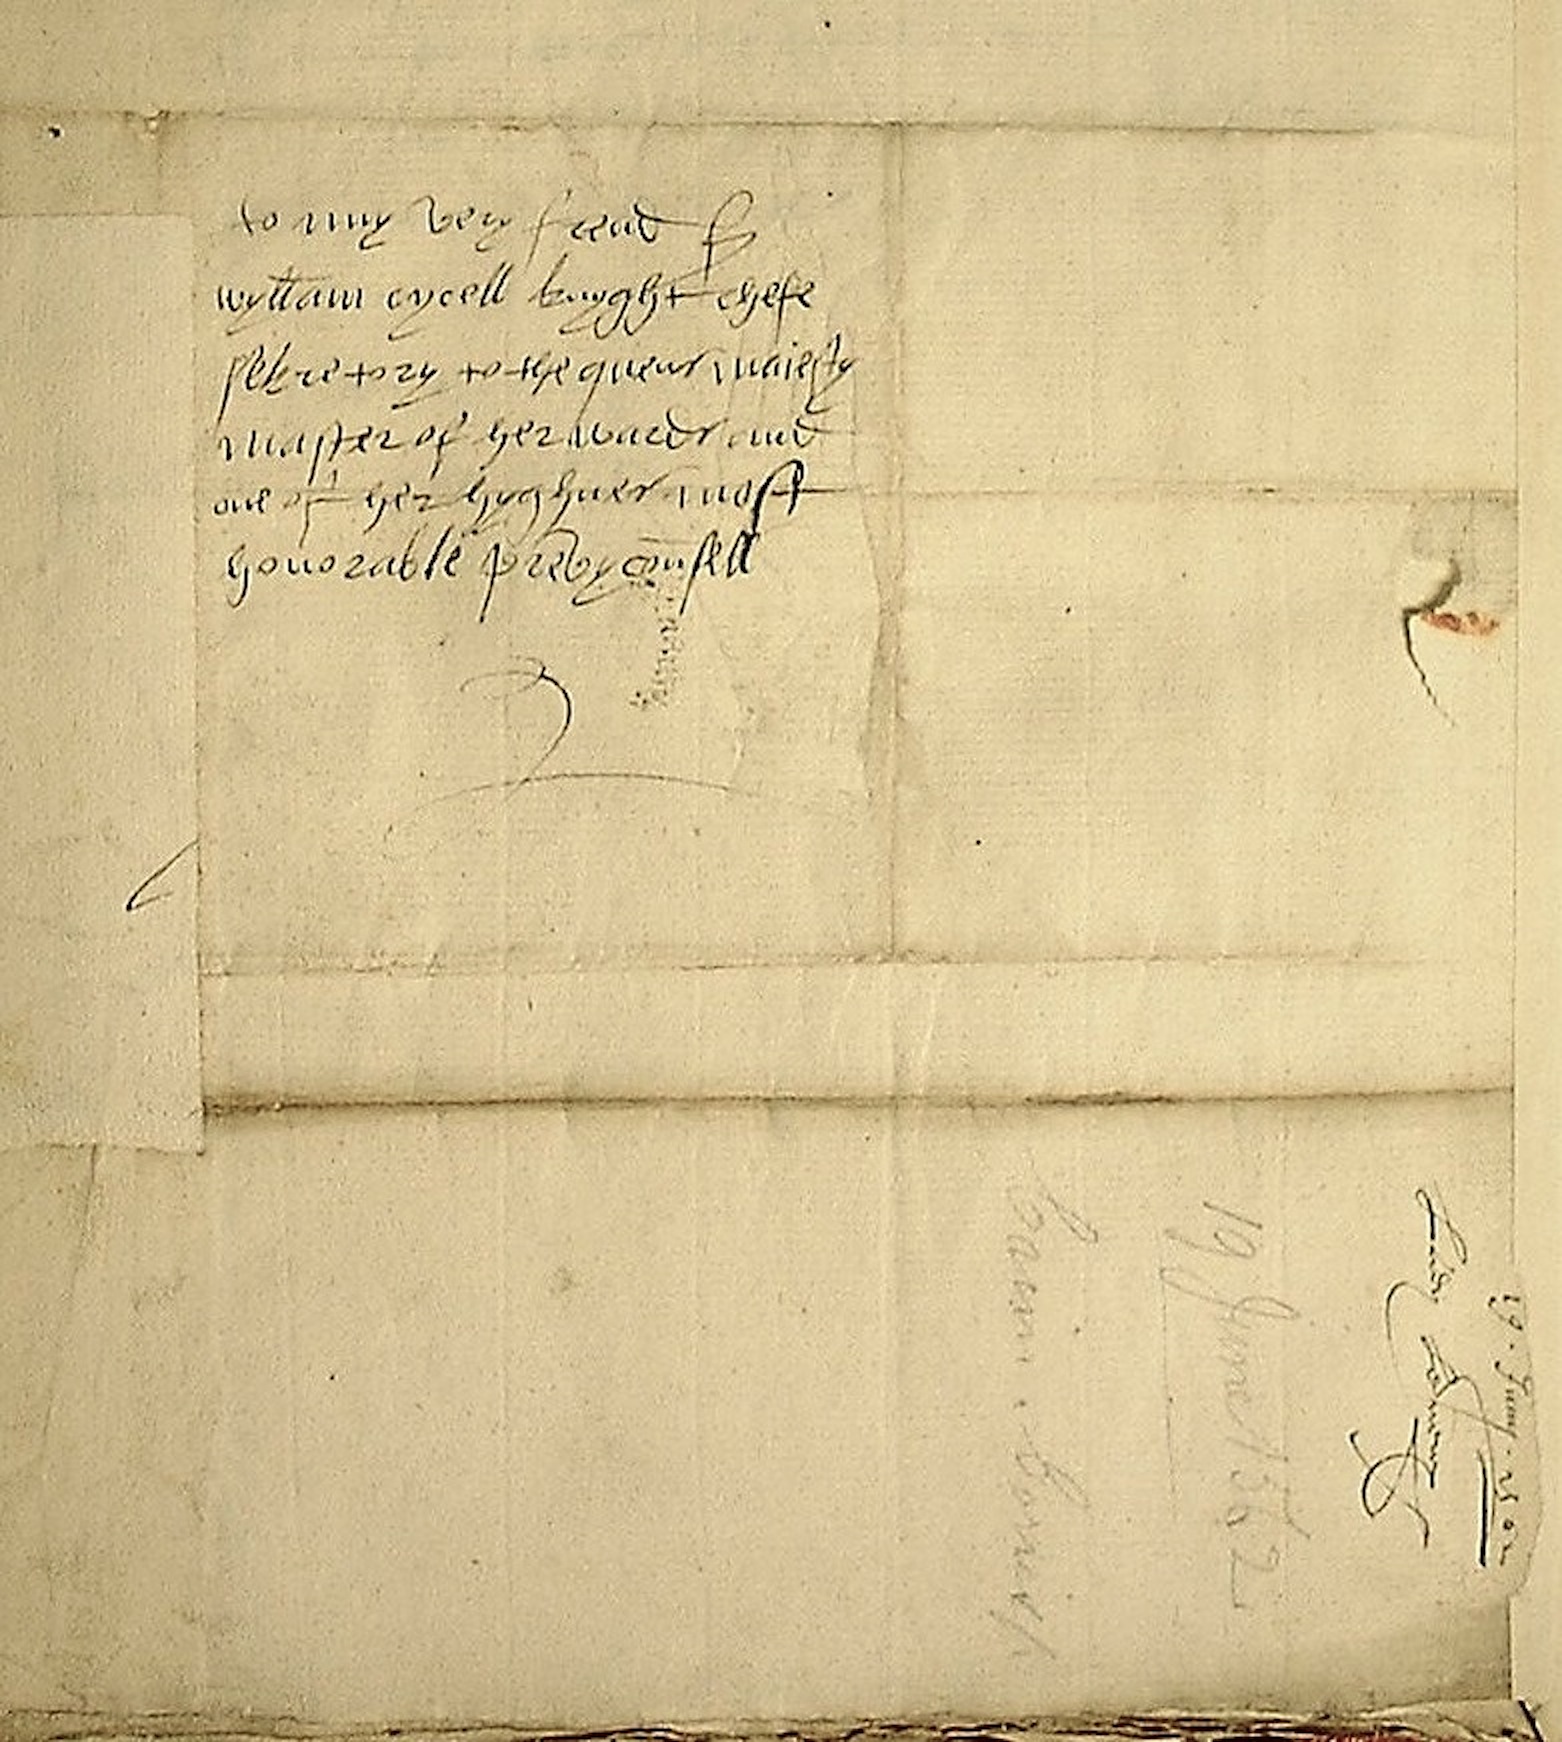 to my very frend Sr
wyllam cycell knyght chefe
sekretory to the quens maiesty
master of her wards and
one of her hyghnes most
honorable prevy counsell
19 June 1562
19. Juny. 1562